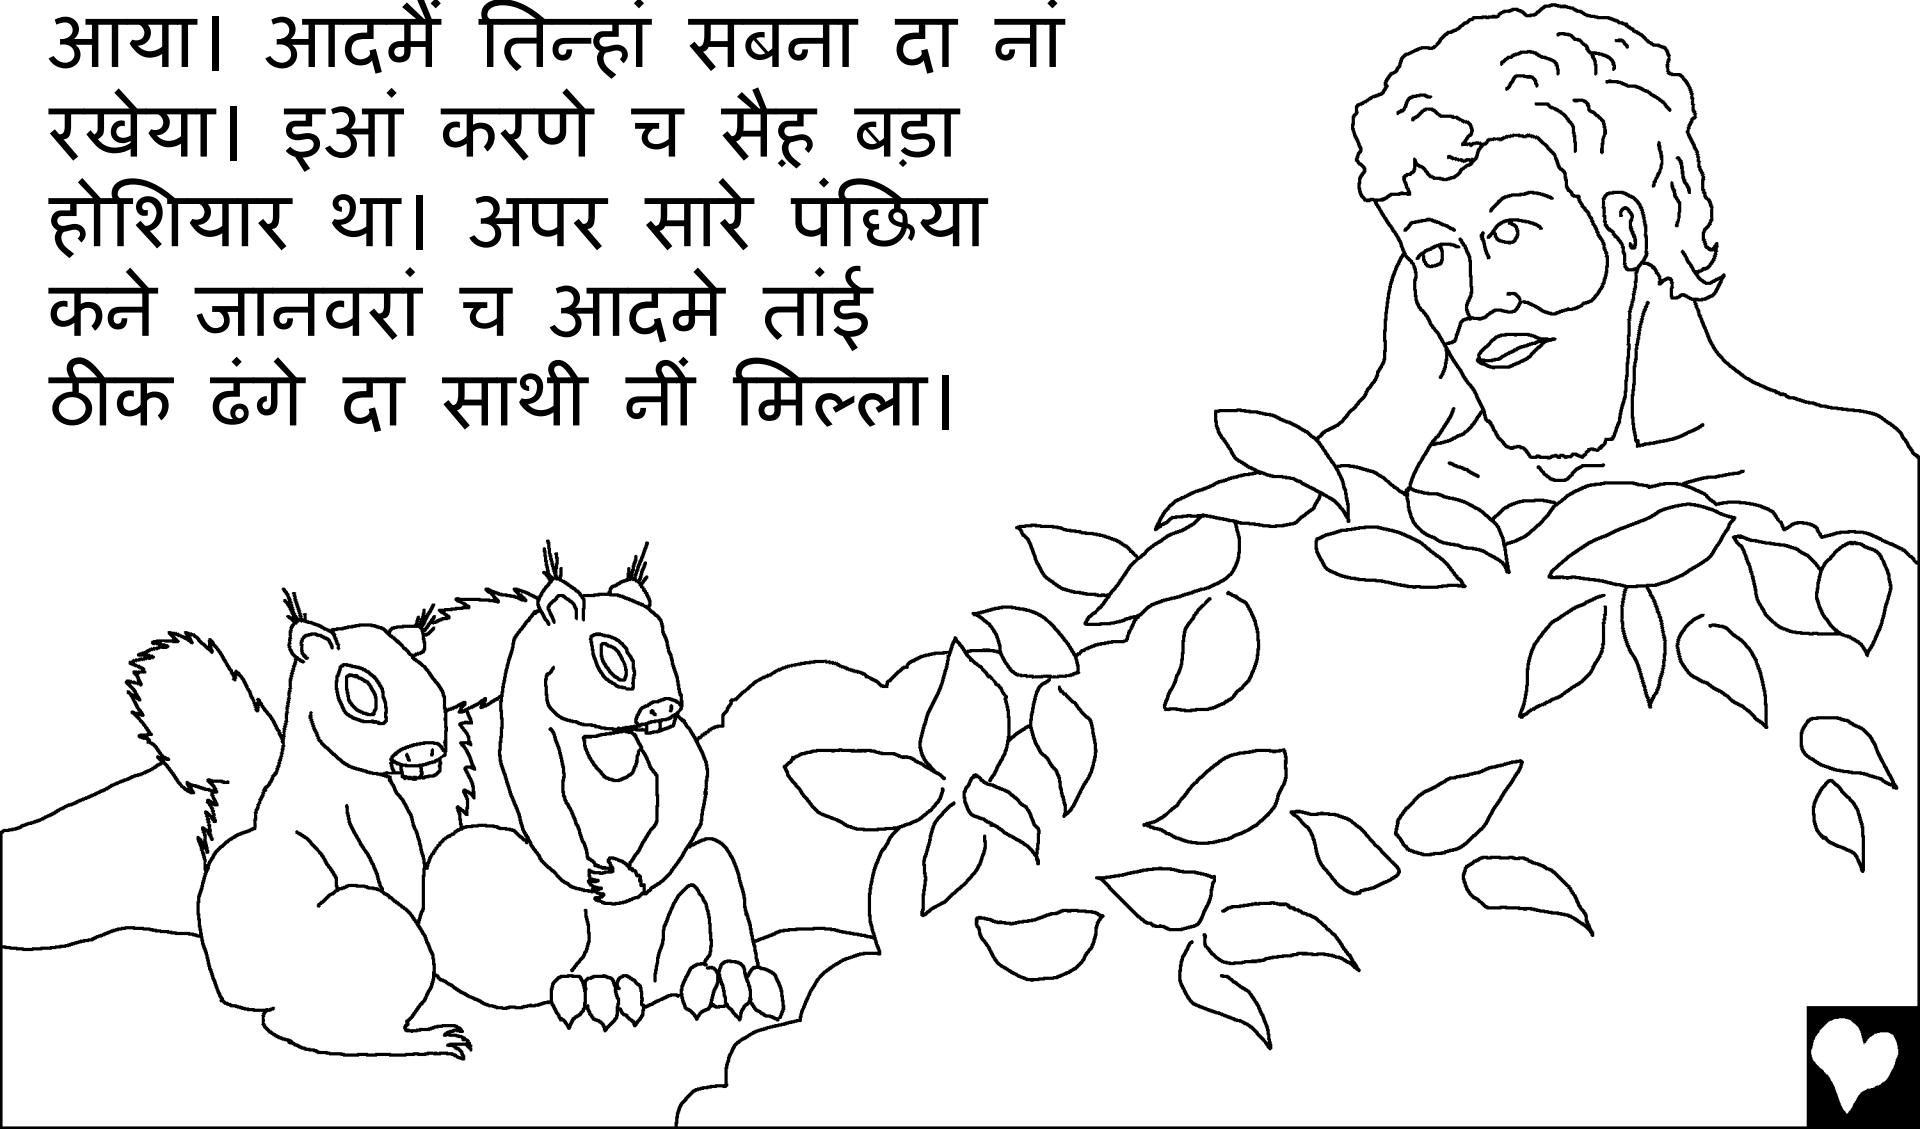 आया। आदमैं तिन्हां सबना दा नां
रखेया। इआं करणे च सैह़ बड़ा
होशियार था। अपर सारे पंछिया
कने जानवरां च आदमे तांई
ठीक ढंगे दा साथी नीं मिल्ला।